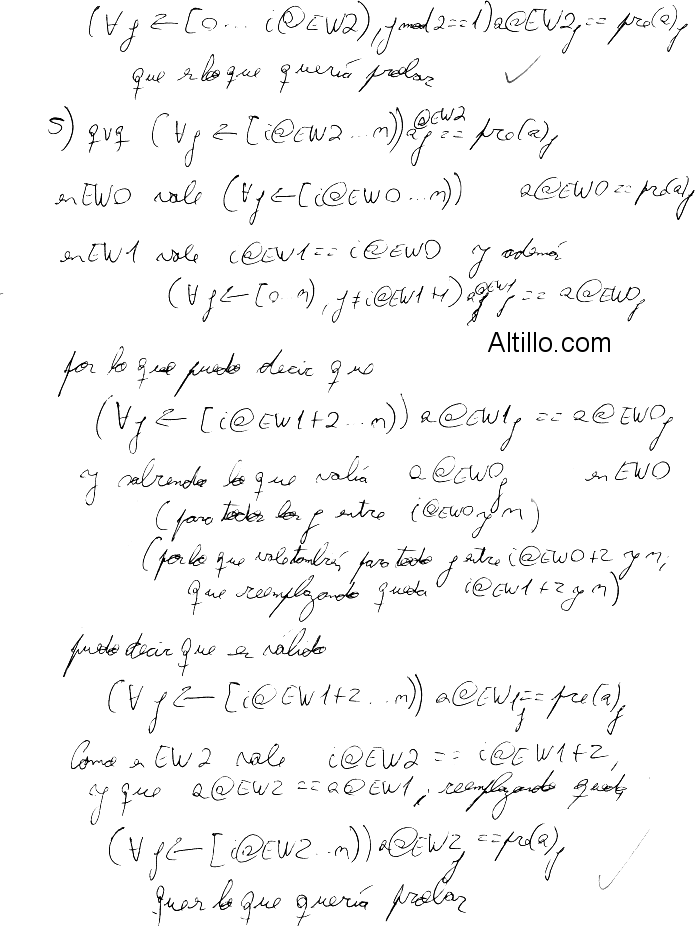 (∀ j ← [0... i@EW2), j mod 2==1) a@EW2j == pre(a)j
que es lo que quería probar ✓
5) qvq (∀ j ← [i@EW2...n)) a@EW2j == pre(a)j
en EW0 vale (∀ j ← [i@EW0...n)) a@EW0 == pre(a)j
en EW1 vale i@EW1 == i@EW0 y además
(∀ j ← [0..n), j ≠ i@EW1+1) a@EW1j == a@EW0j
Altillo.com
por lo que puedo decir que
(∀ j ← [i@EW1+2...n)) a@EW1j == a@EW0j
y sabiendo lo que valía a@EW0j en EW0
(para todos los j entre i@EW0 y n)
(por lo que vale también para todo j entre i@EW0+2 y n,
que reemplazando queda i@EW1+2 y n)
puedo decir que es válido
(∀ j ← [i@EW1+2...n)) a@EW1j == pre(a)j
Como en EW2 vale i@EW2 == i@EW1+2,
y que a@EW2 == a@EW1, reemplazando queda
(∀ j ← [i@EW2...n)) a@EW2j == pre(a)j ✓
que es lo que quería probar